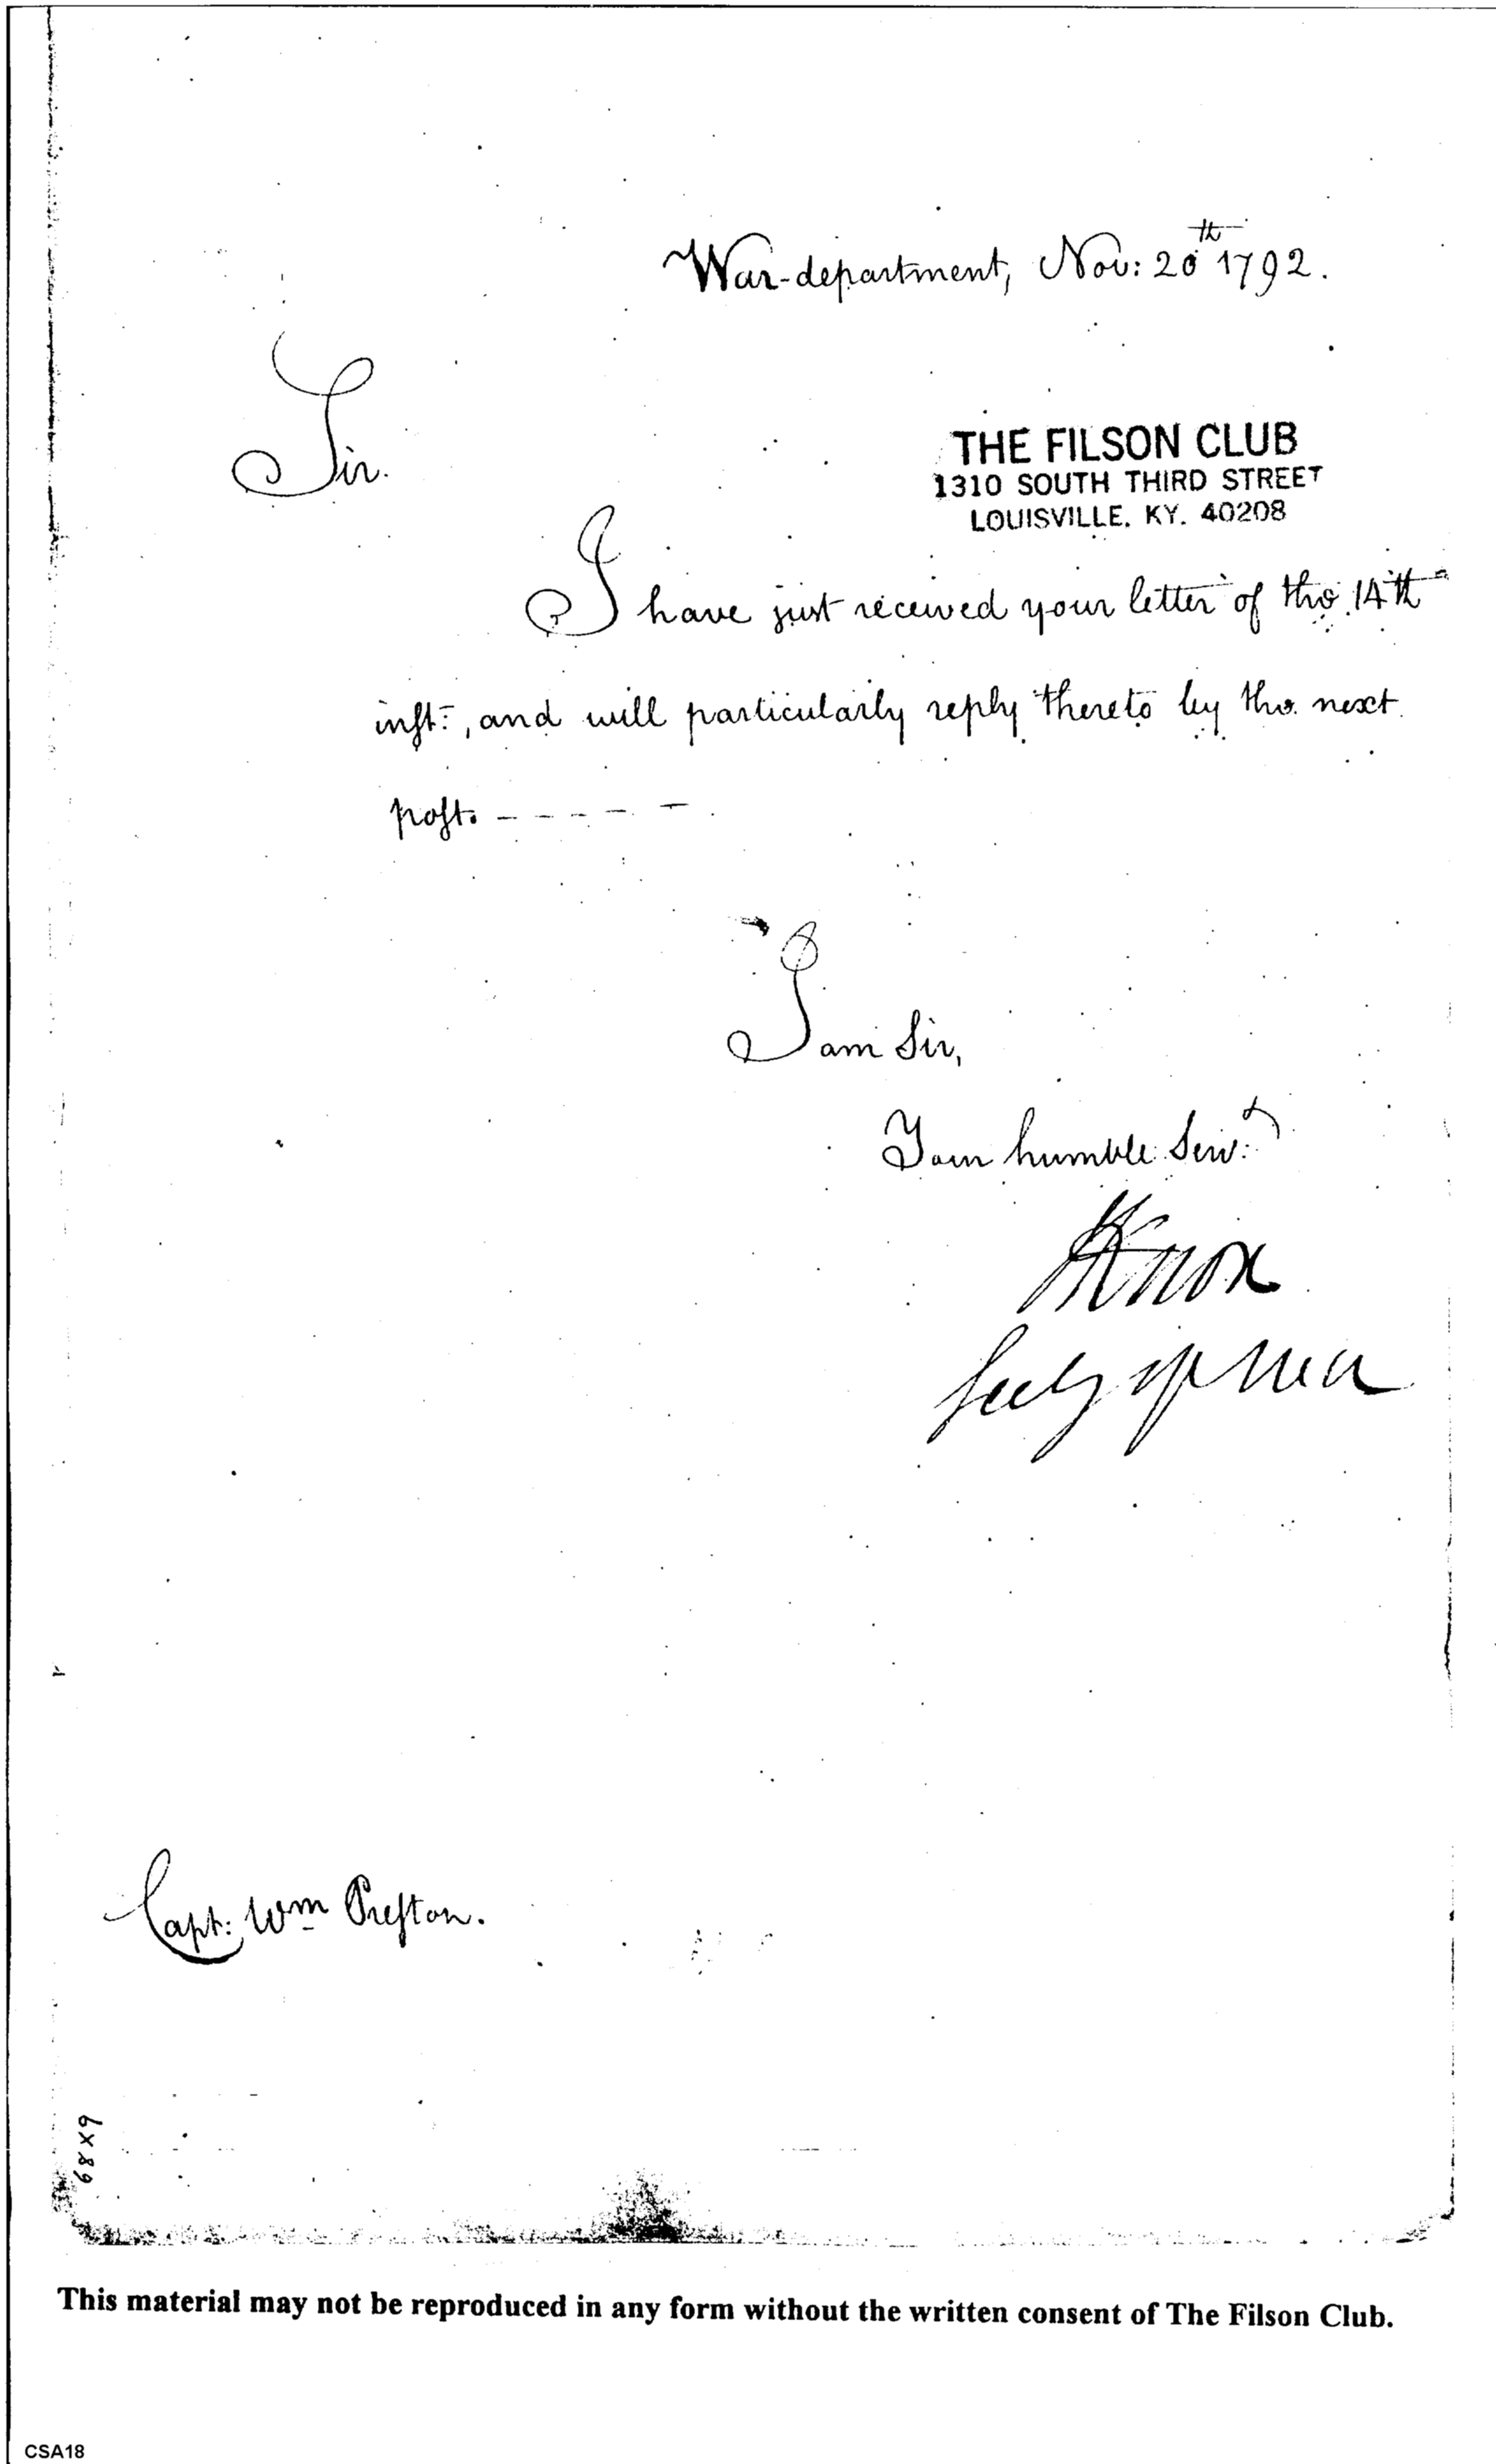 War-department, Nov: 20th 1792.
Sir.
THE FILSON CLUB
1310 SOUTH THIRD STREET
LOUISVILLE, KY. 40208
I have just received your letter of the 14th
inſt:, and will particularly reply thereto by the next
poſt. - - - - - -
I am Sir,
Your humble Serv:t
HKnox
Secy of War
Capt: Wm Preſton.
6X89
This material may not be reproduced in any form without the written consent of The Filson Club.
CSA18